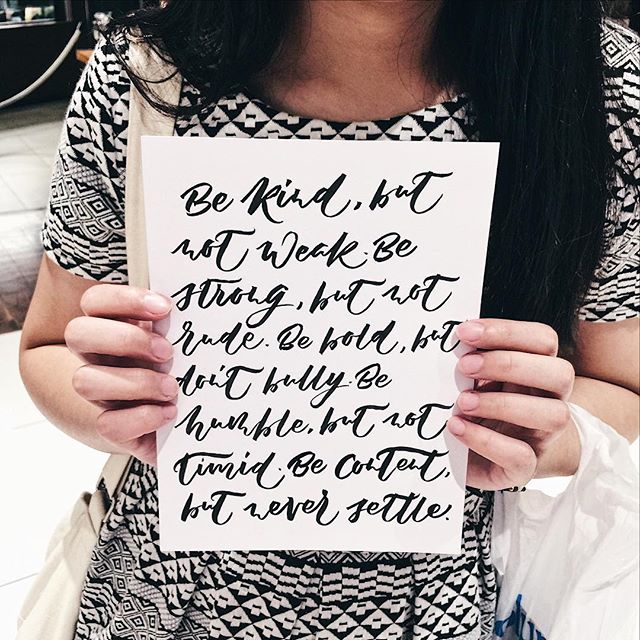 Be kind, but
not weak. Be
strong, but not
rude. Be bold, but
don't bully. Be
humble, but not
timid. Be content,
but never settle.